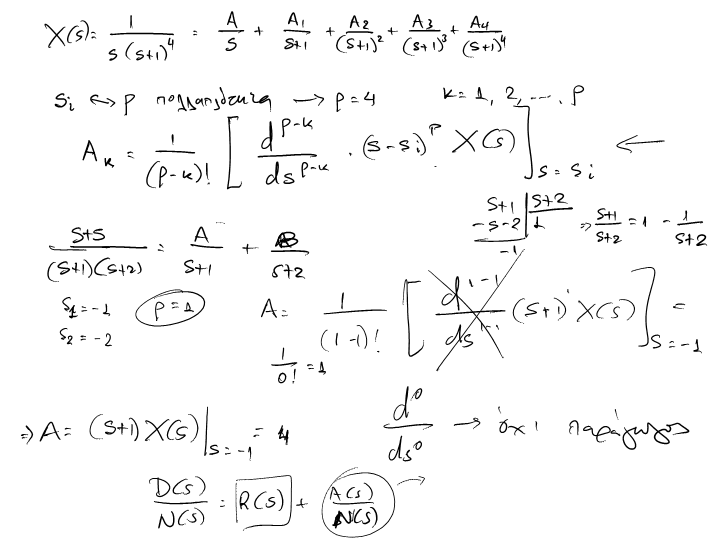 X(s) = 1 / s(s+1)^4 = A/s + A1/s+1 + A2/(s+1)^2 + A3/(s+1)^3 + A4/(s+1)^4
si ↔ p πολλαπλότητα → p=4    k=1, 2, ..., p
Ak = 1/(p-k)! [ d^{p-k}/ds^{p-k} · (s-si)^p X(s) ]_{s=si} ←
s+1 | s+2
-s-2 | 1
-1
⇒ s+1/s+2 = 1 - 1/s+2
s+5/(s+1)(s+2) = A/s+1 + B/s+2
s1=-1    p=1    A= 1/(1-1)! [ d^{1-1}/ds^{1-1} (s+1)^1 X(s) ]_{s=-1} =
s2=-2
1/0! = 1
⇒ A = (s+1) X(s)|_{s=-1} = 4    d^0/ds^0 → όχι παράγωγος
D(s)/N(s) = R(s) + A(s)/N(s) →